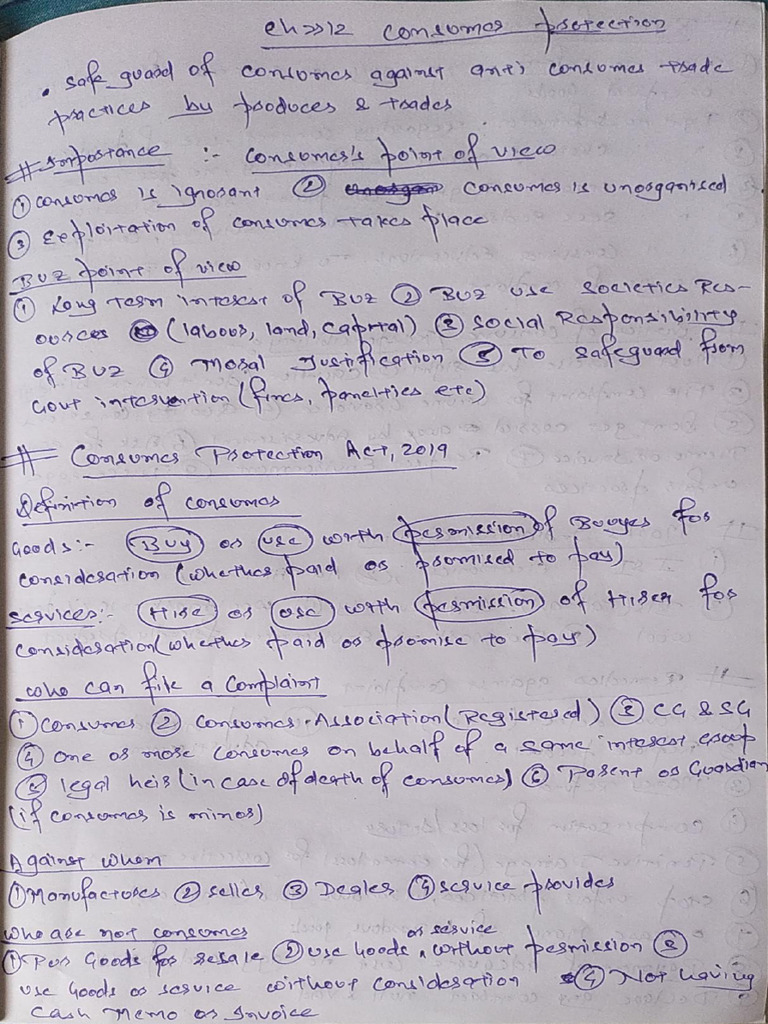 ch⇒12 consumer protection
• safe guard of consumer against anti consumer trade
practices by producer & trader
# Importance :- consumer's point of view
① consumer is ignorant ② consumer is unorganised
③ Exploitation of consumer takes place
BUZ point of view
① Long Term interest of BUZ ② BUZ use societies Res-
ources (labour, land, capital) ③ social Responsibility
of BUZ ④ Moral Justification ⑤ To safeguard from
Govt intervention (fines, panelties etc)
# Consumer Protection Act, 2019.
Definition of consumer
Goods:- Buy or use with permission of Buuyer for
consideration (whether paid or promised to pay)
services:- Hire or use with permission of Hirer for
consideration (whether paid or promise to pay)
who can file a complaint
① consumer ② consumer Association (Registered) ③ CG & SG
④ one or more consumer on behalf of a same interest group
⑤ legal heir (in case of death of consumer) ⑥ Parent or Guardian
(if consumer is minor)
Against whom
① Manufacturer ② seller ③ Dealer ④ service provider
who are not consumer
① Pur Goods for resale ② use Goods or service without permission ③
use Goods or service without consideration ④ Not having
cash memo or Invoice